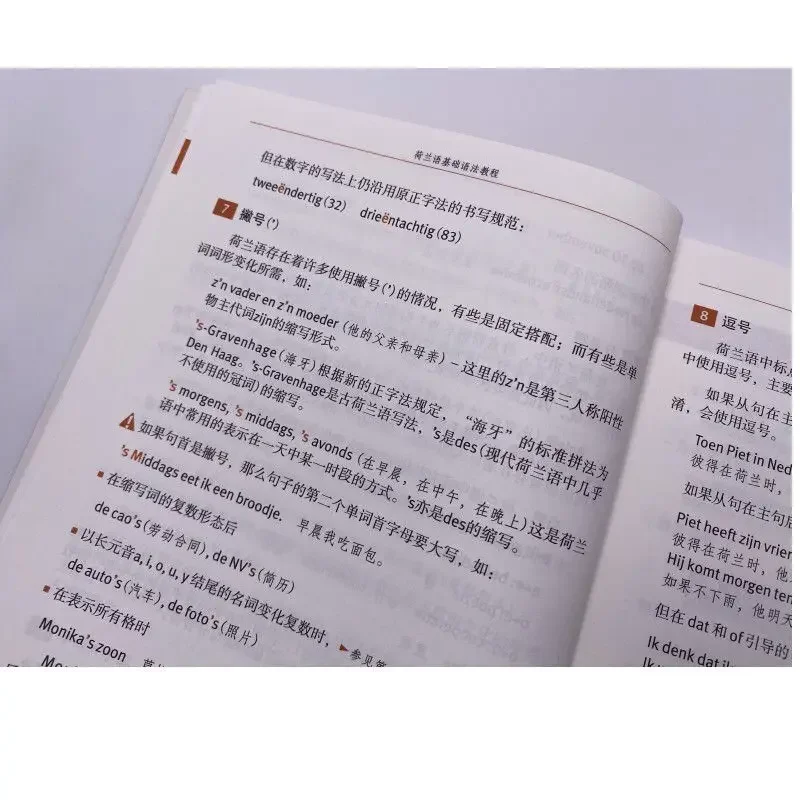 荷兰语基础语法教程
但在数字的写法上仍沿用原正字法的书写规范：
tweeëndertig (32) drieëntachtig (83)
7 撇号(')
荷兰语存在着许多使用撇号(')的情况，有些是固定搭配；而有些是单
词词形变化所需，如：
z'n vader en z'n moeder (他的父亲和母亲) – 这里的z'n是第三人称阳性
物主代词zijn的缩写形式。
's-Gravenhage (海牙) 根据新的正字法规定，“海牙”的标准拼法为
Den Haag。's-Gravenhage是古荷兰语写法，'s是des (现代荷兰语中几乎
不使用的冠词) 的缩写。
's morgens, 's middags, 's avonds (在早晨，在中午，在晚上) 这是荷兰
语中常用的表示在一天中某一时段的方式。's亦是des的缩写。
如果句首是撇号，那么句子的第二个单词首字母要大写，如：
's Middags eet ik een broodje. 早晨我吃面包。
▪ 在缩写词的复数形态后
de cao's (劳动合同), de NV's (简历)
▪ 以长元音a, i, o, u, y 结尾的名词变化复数时，▶参见第
de auto's (汽车), de foto's (照片)
▪ 在表示所有格时
Monika's zoon
8 逗号
荷兰语中标点
中使用逗号，主要
如果从句在主
淆，会使用逗号。
Toen Piet in Ned
彼得在荷兰时，
如果从句在主句后
Piet heeft zijn vrien
彼得在荷兰时，他
Hij komt morgen ten
如果不下雨，他明天
但在 dat 和 of 引导的
Ik denk dat ik